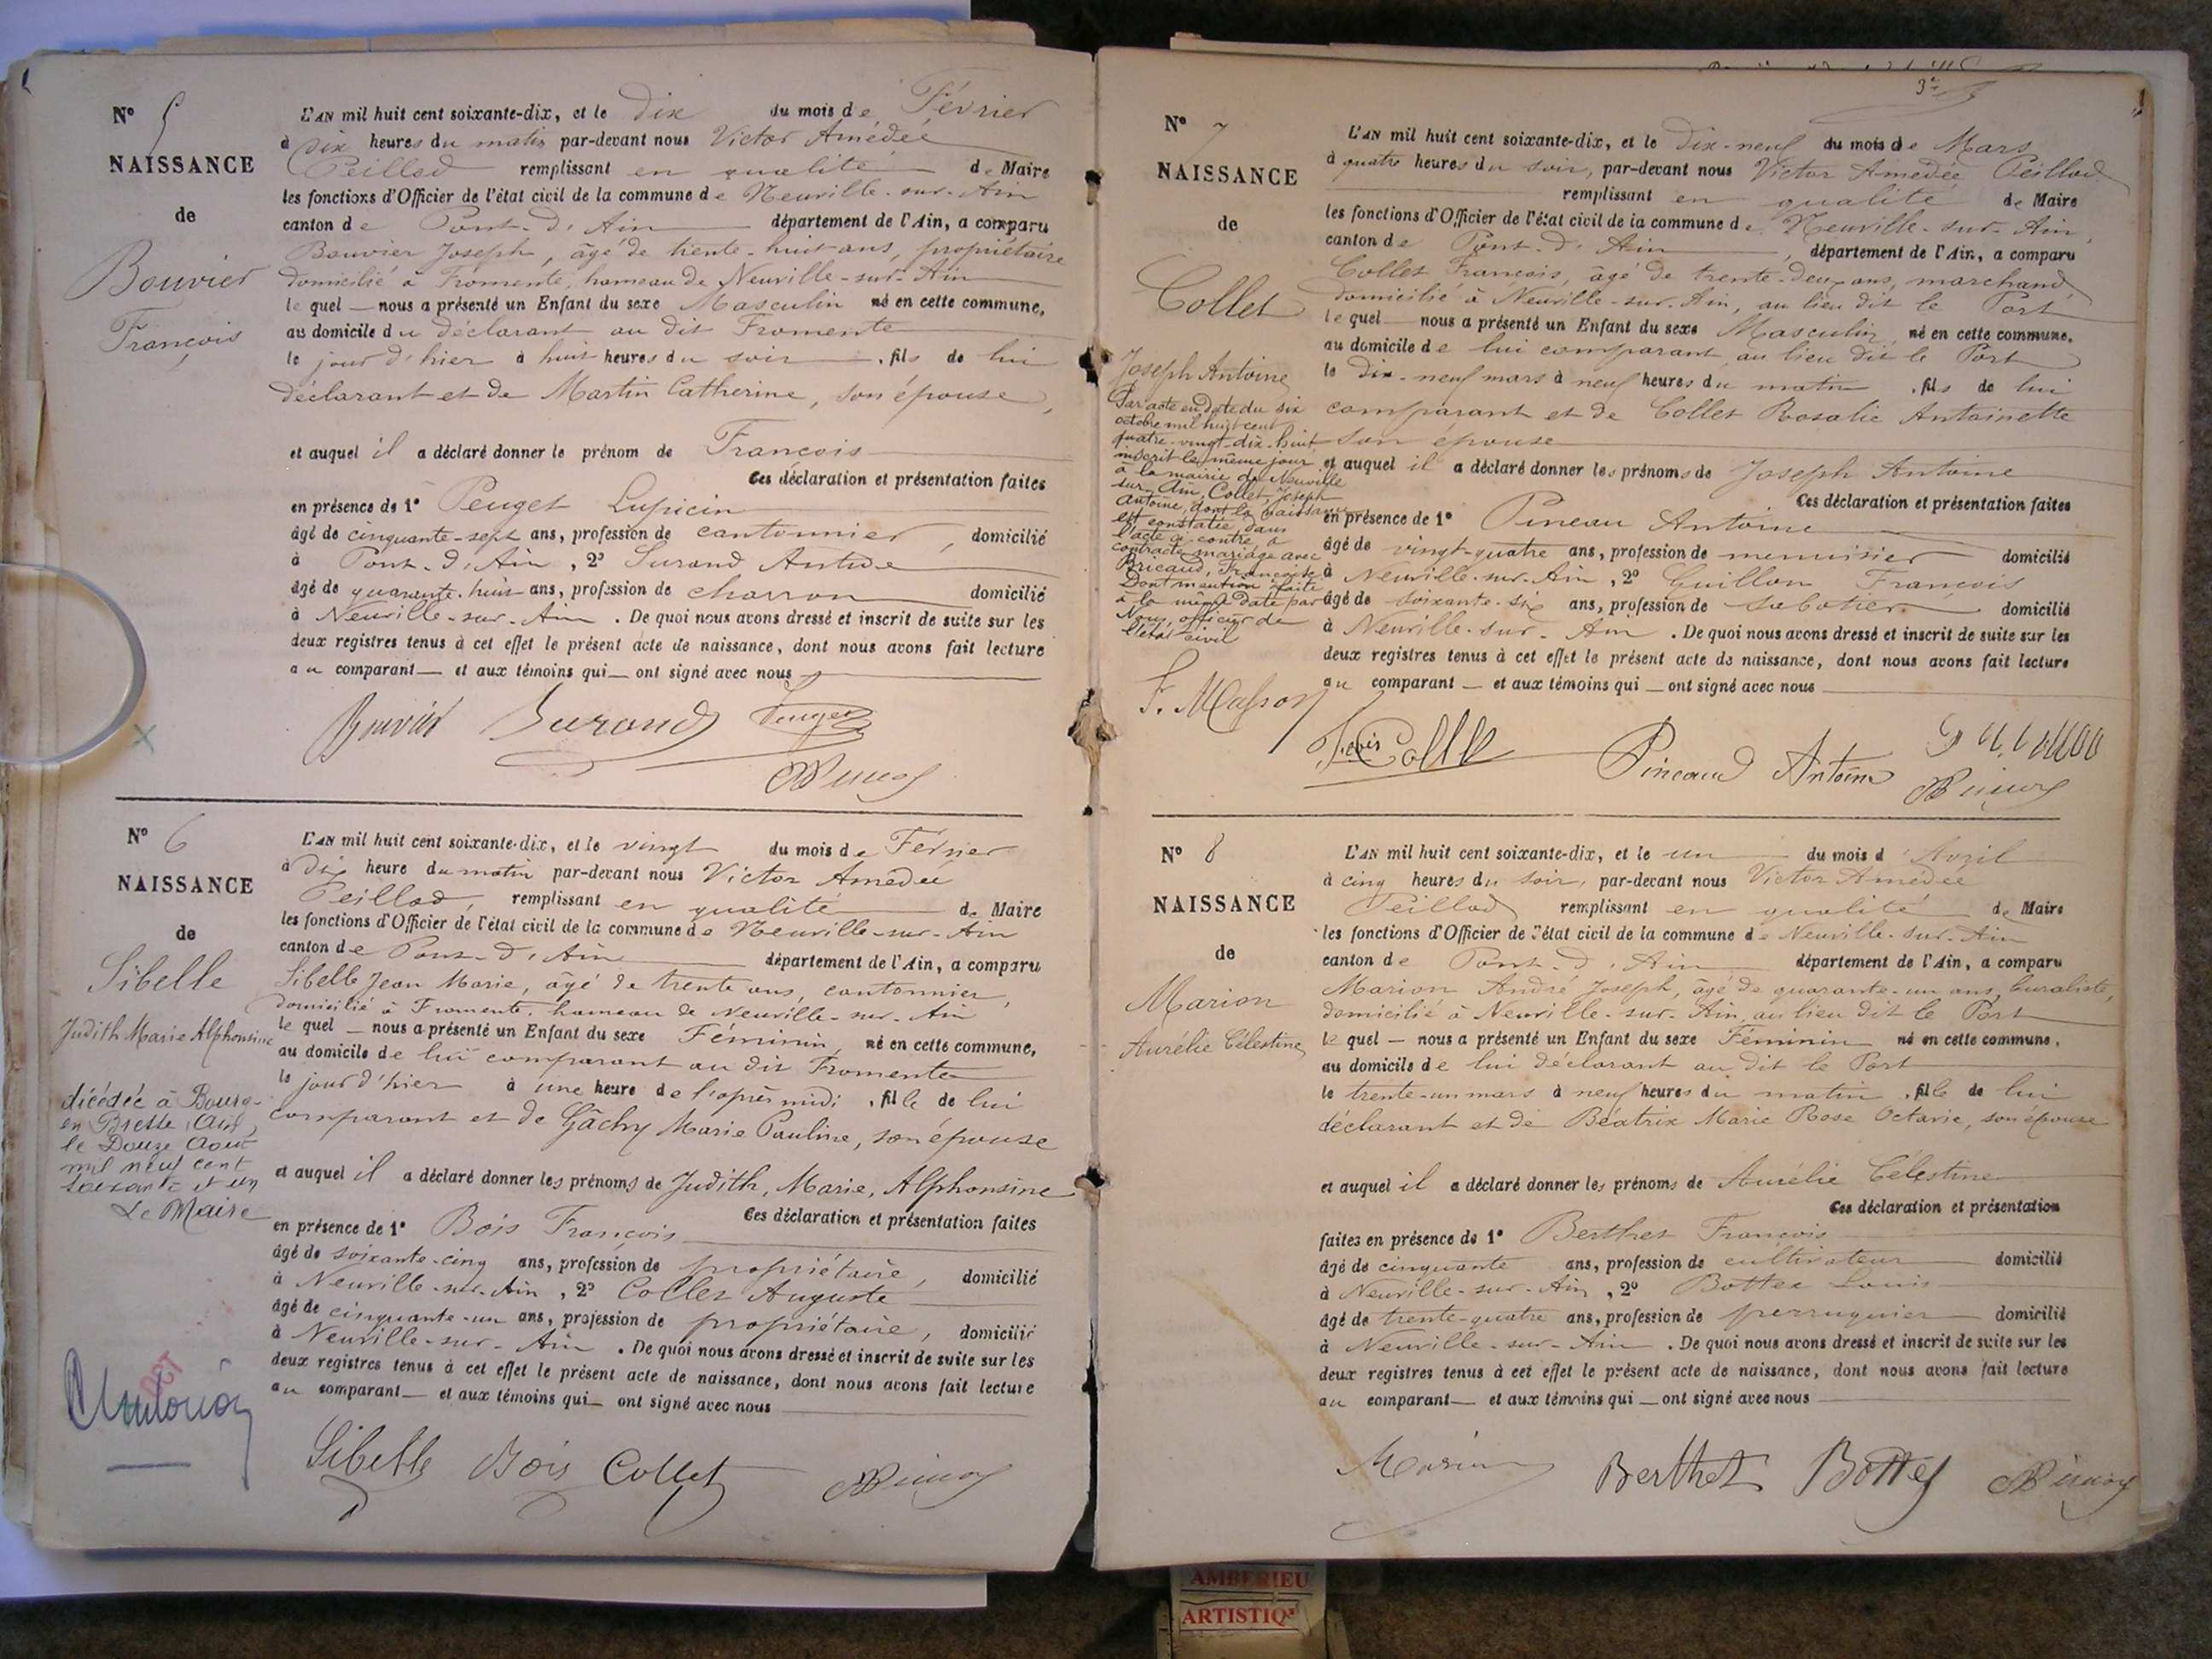 Nº 5
NAISSANCE
de
Bouvier
François
L'AN mil huit cent soixante-dix, et le dix du mois de Février
à dix heures du matin par-devant nous Victor Amédée
Peillod remplissant en qualité de Maire
les fonctions d'Officier de l'état civil de la commune de Neuville-sur-Ain
canton de Pont-d'Ain département de l'Ain, a comparu
Bouvier Joseph, âgé de trente-huit ans, propriétaire
domicilié à Fromente, hameau de Neuville-sur-Ain
le quel nous a présenté un Enfant du sexe Masculin né en cette commune,
au domicile du déclarant au dit Fromente
le jour d'hier à huit heures du soir, fils de lui
déclarant et de Martin Catherine, son épouse,
et auquel il a déclaré donner le prénom de François
Ces déclaration et présentation faites
en présence de 1º Peuget Lupicin
âgé de cinquante-sept ans, profession de cantonnier, domicilié
à Pont-d'Ain, 2º Durand
âgé de quarante-huit ans, profession de charron domicilié
à Neuville-sur-Ain. De quoi nous avons dressé et inscrit de suite sur les
deux registres tenus à cet effet le présent acte de naissance, dont nous avons fait lecture
au comparant et aux témoins qui ont signé avec nous
Bouvier Durand Peuget
Nº 6
NAISSANCE
de
Sibelle
Judith Marie Alphonsine
décédée à Bourg-
en Bresse (Ain)
le Douze Août
mil neuf cent
soixante et un
Le Maire
L'AN mil huit cent soixante-dix, et le vingt du mois de Février
à dix heure du matin par-devant nous Victor Amédée
Peillod, remplissant en qualité de Maire
les fonctions d'Officier de l'état civil de la commune de Neuville-sur-Ain
canton de Pont-d'Ain département de l'Ain, a comparu
Sibelle Jean Marie, âgé de trente ans, cantonnier,
domicilié à Fromente, hameau de Neuville-sur-Ain
le quel nous a présenté un Enfant du sexe Féminin, né en cette commune,
au domicile de lui comparant au dit Fromente
le jour d'hier à une heure de l'après midi, fille de lui
comparant et de Gâchy Marie Pauline, son épouse
et auquel il a déclaré donner les prénoms de Judith, Marie, Alphonsine
Ces déclaration et présentation faites
en présence de 1º Bois François
âgé de soixante-cinq ans, profession de propriétaire, domicilié
à Neuville-sur-Ain, 2º Collet Auguste
âgé de cinquante-un ans, profession de propriétaire, domicilié
à Neuville-sur-Ain. De quoi nous avons dressé et inscrit de suite sur les
deux registres tenus à cet effet le présent acte de naissance, dont nous avons fait lecture
au comparant et aux témoins qui ont signé avec nous
Sibelle Bois Collet
Nº 7
NAISSANCE
de
Collet
Joseph Antoine
Par acte en date du six
octobre mil huit cent
quatre-vingt-dix-huit
inscrit le même jour
à la mairie de Neuville
sur-Ain, Collet Joseph
Antoine, dont la naissance
est constatée dans
l'acte ci-contre a
contracté mariage avec
Bricaud, Françoise
Dont mention faite
à la même date par
Nous, officier de
l'état civil
F. Masson
L'AN mil huit cent soixante-dix, et le dix-neuf du mois de Mars
à quatre heures du soir, par-devant nous Victor Amédée Peillod
remplissant en qualité de Maire
les fonctions d'Officier de l'état civil de la commune de Neuville-sur-Ain,
canton de Pont-d'Ain, département de l'Ain, a comparu
Collet François, âgé de trente-deux ans, marchand,
domicilié à Neuville-sur-Ain, au lieu dit le Port
le quel nous a présenté un Enfant du sexe Masculin, né en cette commune,
au domicile de lui comparant, au lieu dit le Port
le dix-neuf mars à neuf heures du matin, fils de lui
comparant et de Collet Rosalie Antoinette
son épouse
et auquel il a déclaré donner les prénoms de Joseph Antoine
Ces déclaration et présentation faites
en présence de 1º Pineau Antoine
âgé de vingt-quatre ans, profession de menuisier domicilié
à Neuville-sur-Ain, 2º Guillon François
âgé de soixante-six ans, profession de sabotier domicilié
à Neuville-sur-Ain. De quoi nous avons dressé et inscrit de suite sur les
deux registres tenus à cet effet le présent acte de naissance, dont nous avons fait lecture
au comparant et aux témoins qui ont signé avec nous
Pineaud Antoine
Nº 8
NAISSANCE
de
Marion
Aurélie Célestine
L'AN mil huit cent soixante-dix, et le un du mois d'Avril
à cinq heures du soir, par-devant nous Victor Amédée
Peillod remplissant en qualité de Maire
les fonctions d'Officier de l'état civil de la commune de Neuville-sur-Ain
canton de Pont-d'Ain département de l'Ain, a comparu
Marion André Joseph, âgé de quarante-un ans, buraliste,
domicilié à Neuville-sur-Ain, au lieu dit le Port
le quel nous a présenté un Enfant du sexe Féminin né en cette commune,
au domicile de lui déclarant au dit le Port
le trente-un mars à neuf heures du matin, fille de lui
déclarant et de Béatrix Marie Rose Octavie, son épouse
et auquel il a déclaré donner les prénoms de Aurélie Célestine
Ces déclaration et présentation
faites en présence de 1º Berthet François
âgé de cinquante ans, profession de cultivateur domicilié
à Neuville-sur-Ain, 2º Bottex Louis
âgé de trente-quatre ans, profession de perruquier domicilié
à Neuville-sur-Ain. De quoi nous avons dressé et inscrit de suite sur les
deux registres tenus à cet effet le présent acte de naissance, dont nous avons fait lecture
au comparant et aux témoins qui ont signé avec nous
Marion Berthet Bottex
AMBERIEU
ARTISTIQ